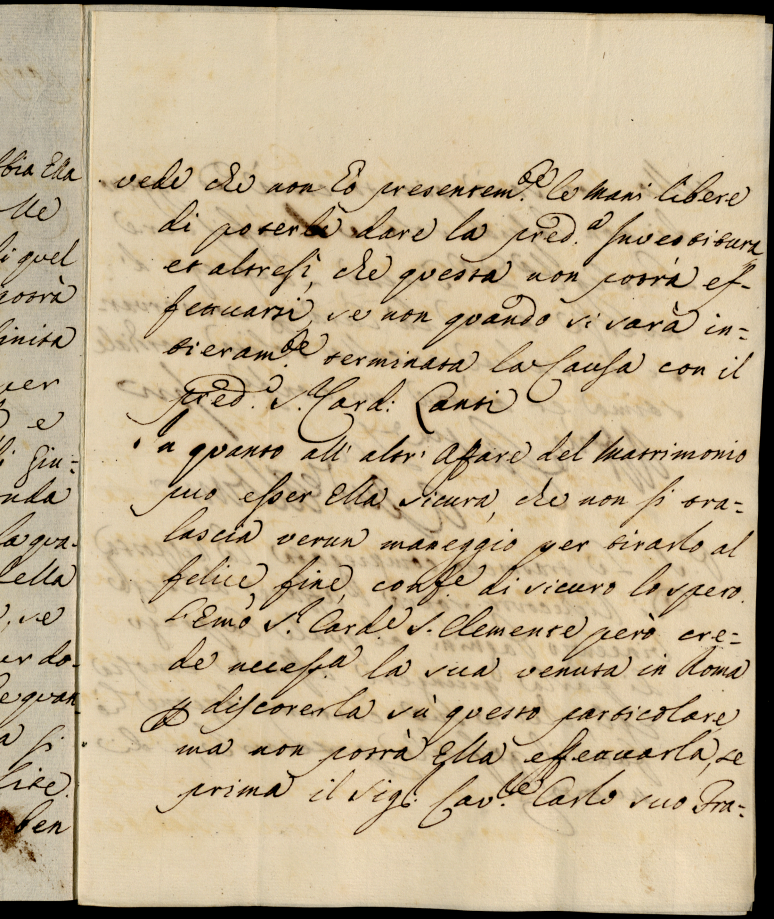 bbia Ella
lle
di quel
potrà
finita
per
e
di Giu=
nda
la qua-
della
, se
per do-
le quan-
a si
lite.
ben
vede che non hò presentem.te le mani libere
di poterli dare la pred.a Investitura,
et altresì, che questa non potrà ef-
fettuarsi, se non quando si sarà in=
tieram.te terminata la Causa con il
pred.o S.r Card: Lanti
In quanto all' altr' Affare del Matrimonio
può esser Ella sicura, che non si tra=
lascia verun maneggio per tirarlo al
felice fine, conf.e di sicuro lo spero.
L'Emo S.r Card.e S. Clemente però cre=
de necess.a la sua venuta in Roma
p discorerla sù questo particolare
ma non potrà Ella effettuarla, se
prima il Sig.r Cav.re Carlo suo Fra=